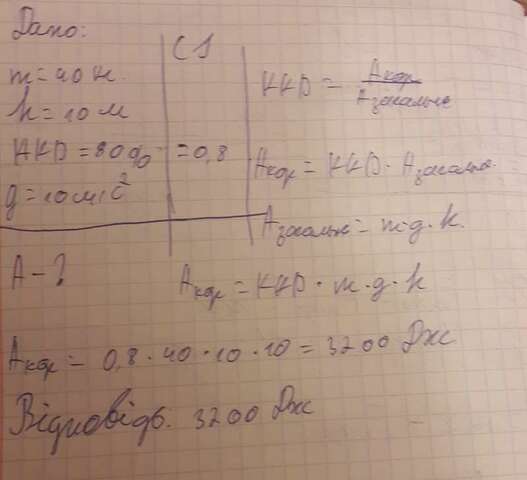 Дано:
m = 40 кг.
h = 10 м
ККД = 80%
g = 10 м/с²
СІ
= 0,8
ККД = Акор / Азагальне
Акор = ККД · Азагальне.
Азагальне = m·g·h.
А - ?
Акор = ККД · m · g · h
Акор = 0,8 · 40 · 10 · 10 = 3200 Дж
Відповідь: 3200 Дж